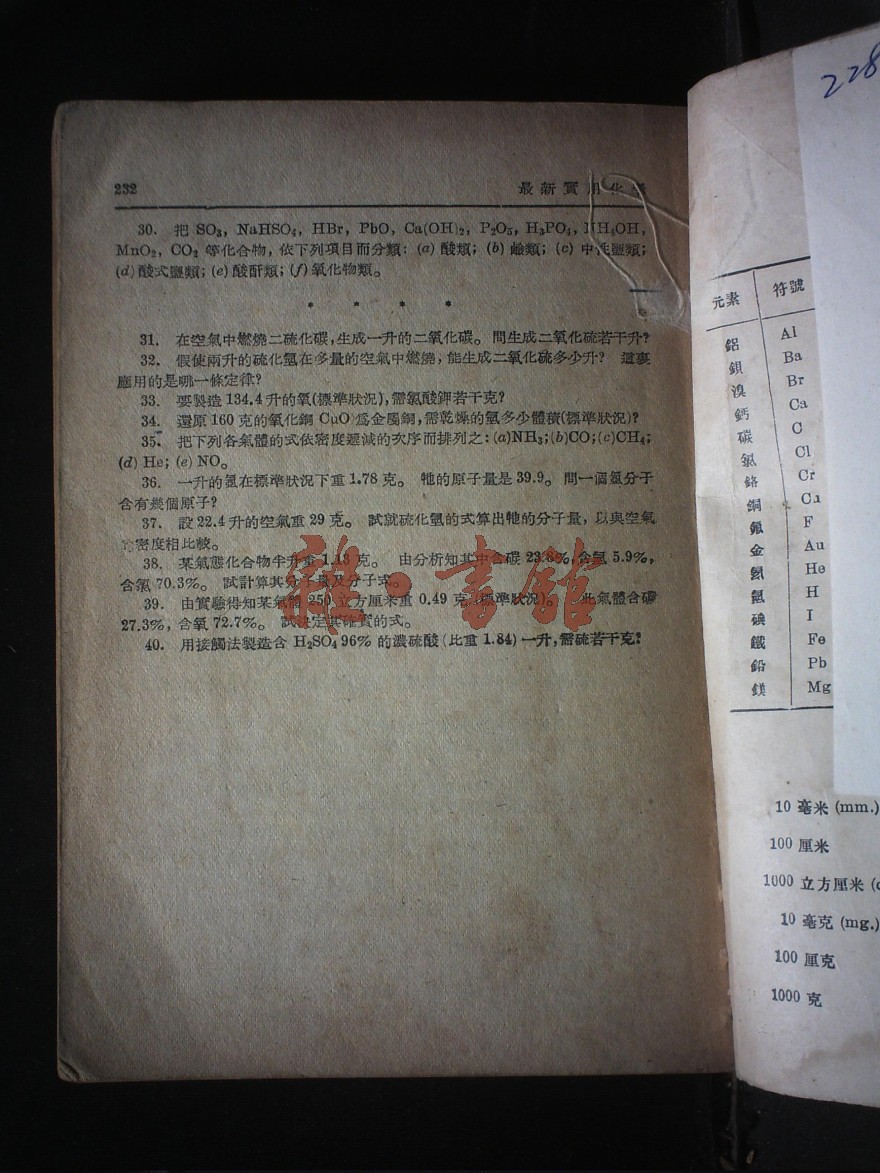 232
最新實用化學
30. 把 SO₃, NaHSO₄, HBr, PbO, Ca(OH)₂, P₂O₅, H₃PO₄, NH₄OH,
MnO₂, CO₂ 等化合物，依下列項目而分類：(a) 酸類；(b) 鹼類；(c) 中性鹽類；
(d) 酸式鹽類；(e) 酸酐類；(f) 氧化物類。
* * * *
31. 在空氣中燃燒二硫化碳，生成一升的二氧化碳。問生成二氧化硫若干升？
32. 假使兩升的硫化氫在多量的空氣中燃燒，能生成二氧化硫多少升？ 這裏
應用的是哪一條定律？
33. 要製造 134.4 升的氧(標準狀況)，需氯酸鉀若干克？
34. 還原 160 克的氧化銅 CuO 爲金屬銅，需乾燥的氫多少體積(標準狀況)？
35. 把下列各氣體的式依密度遞減的次序而排列之：(a)NH₃；(b)CO；(c)CH₄；
(d) He；(e) NO。
36. 一升的氬在標準狀況下重 1.78 克。 牠的原子量是 39.9。 問一個氬分子
含有幾個原子？
37. 設 22.4 升的空氣重 29 克。 試就硫化氫的式算出牠的分子量，以與空氣
密度相比較。
38. 某氣態化合物半升重 1.13 克。 由分析知其中含碳 23.8%，含氫 5.9%，
含氯 70.3%。 試計算其分子量及分子式。
39. 由實驗得知某氣體 250 立方厘米重 0.49 克(標準狀況)。 此氣體含碳
27.3%，含氧 72.7%。 試決定其確實的式。
40. 用接觸法製造含 H₂SO₄ 96% 的濃硫酸 (比重 1.84) 一升，需硫若干克？
雜·書館
228
元素 符號
鋁 Al
鋇 Ba
溴 Br
鈣 Ca
碳 C
氯 Cl
鉻 Cr
銅 Cu
氟 F
金 Au
氦 He
氫 H
碘 I
鐵 Fe
鉛 Pb
鎂 Mg
10 毫米 (mm.)
100 厘米
1000 立方厘米 (c
10 毫克 (mg.)
100 厘克
1000 克